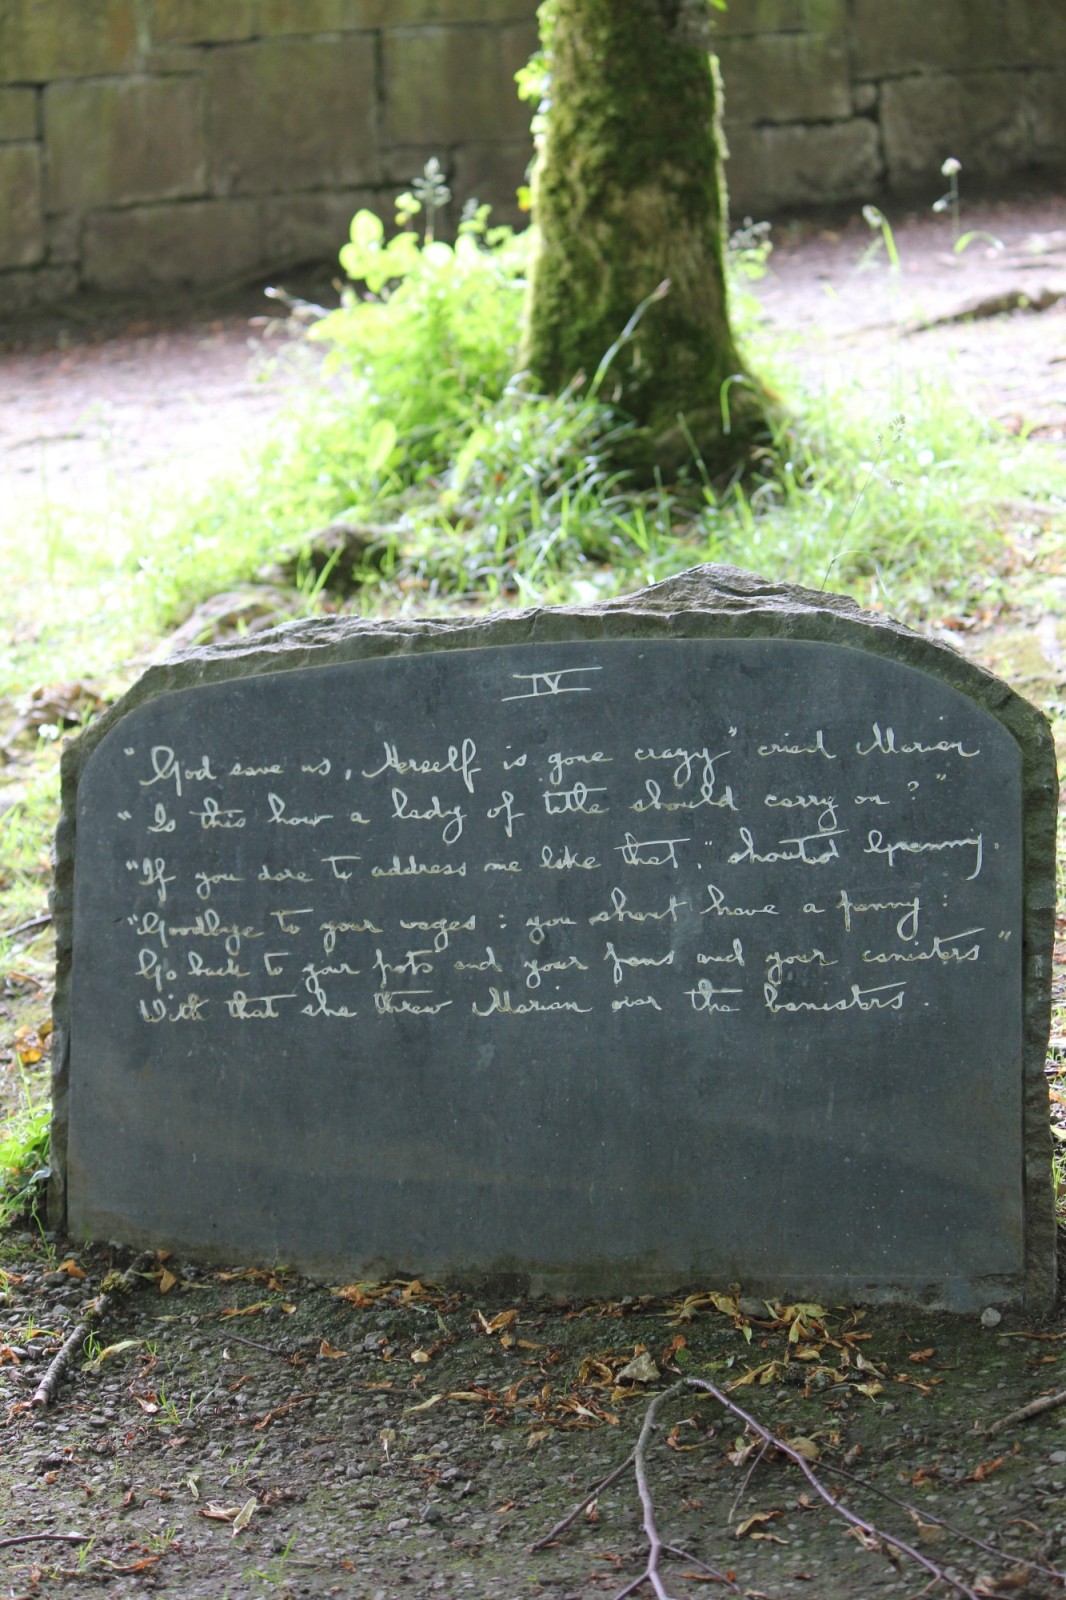 IV
"God save us, Herself is gone crazy" cried Marian
"Is this how a lady of title should carry on?"
"If you dare to address me like that," shouted Granny.
"Goodbye to your wages: you shant have a penny:
Go back to your pots and your pans and your canisters"
With that she threw Marian over the banisters.